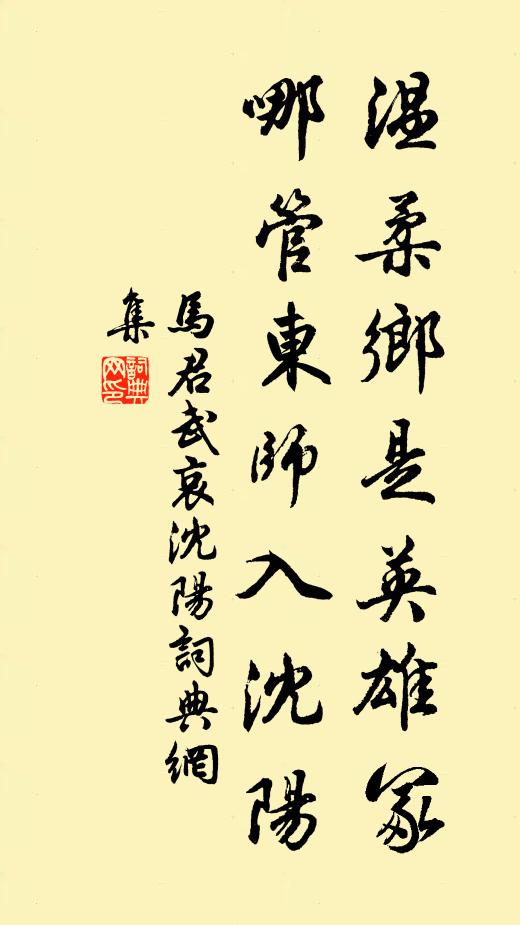 温柔鄉是英雄冢
哪管東師入沈陽
馬君武哀沈陽詞典網
集
詞典
网印